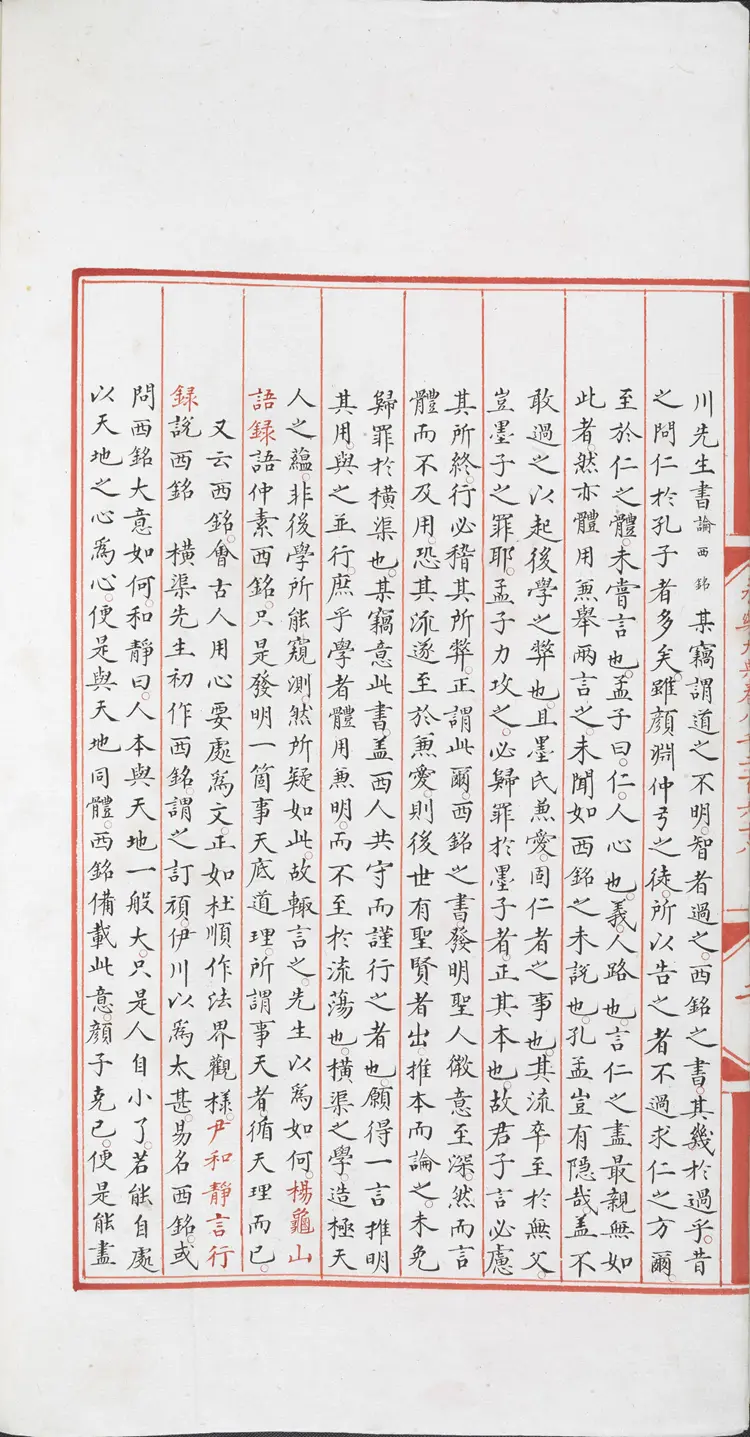 川先生書論西銘某竊謂道之不明智者過之西銘之書其幾於過乎昔
之問仁於孔子者多矣雖顏淵仲弓之徒所以告之者不過求仁之方爾
至於仁之體未嘗言也孟子曰仁人心也義人路也言仁之盡最親無如
此者然亦體用兼舉兩言之未聞如西銘之未說也孔孟豈有隱哉盖不
敢過之以起後學之弊也且墨氏兼愛固仁者之事也其流卒至於無父
豈墨子之罪耶孟子力攻之必歸罪於墨子者正其本也故君子言必慮
其所終行必稽其所弊正謂此爾西銘之書發明聖人微意至深然而言
體而不及用恐其流遂至於兼愛則後世有聖賢者出推本而論之未免
歸罪於橫渠也某竊意此書盖西人共守而謹行之者也願得一言推明
其用與之並行庶乎學者體用兼明而不至於流蕩也橫渠之學造極天
人之蘊非後學所能窺測然所疑如此故輙言之先生以爲如何楊龜山
語録語仲素西銘只是發明一箇事天底道理所謂事天者循天理而已
又云西銘會古人用心要處爲文正如杜順作法界觀樣尹和靜言行
録說西銘 橫渠先生初作西銘謂之訂頑伊川以爲太甚易名西銘或
問西銘大意如何和靜曰人本與天地一般大只是人自小了若能自處
以天地之心爲心便是與天地同體西銘備載此意顏子克已便是能盡